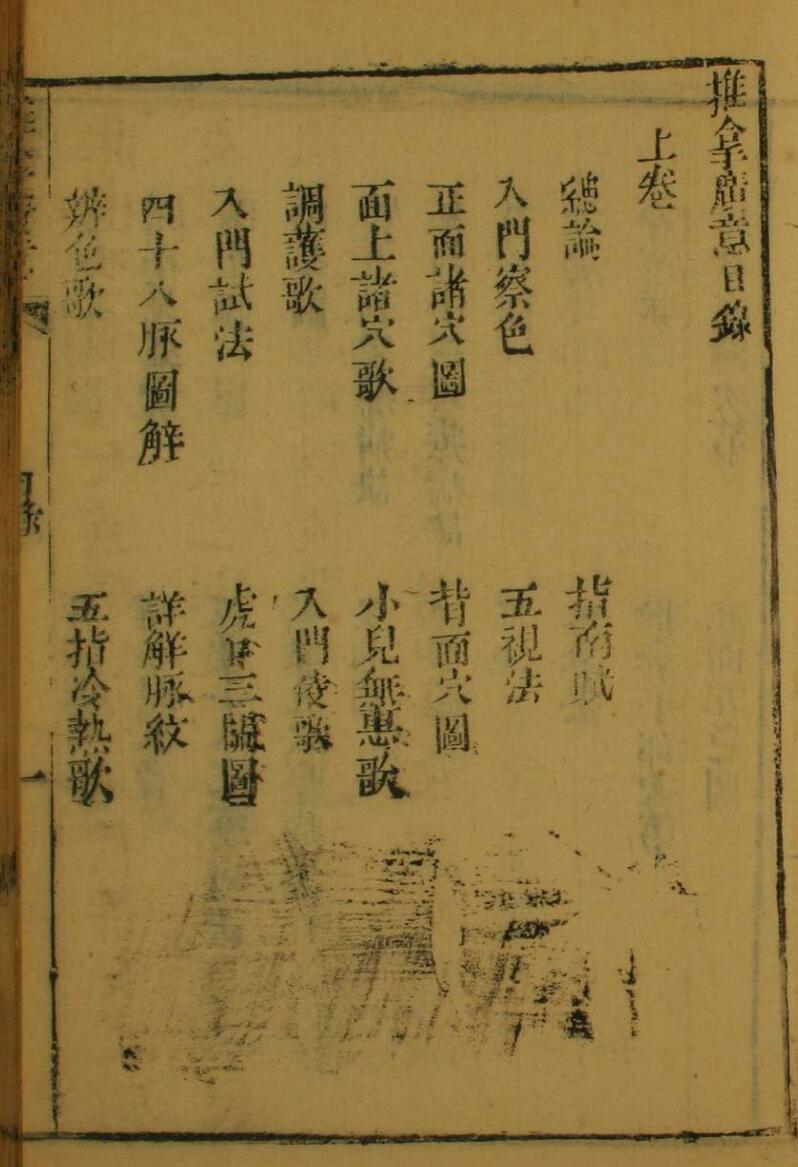 推拿廣意目錄
上卷
總論 指南賦
入門察色 五視法
正面諸穴圖 背面穴圖
面上諸穴歌 小兒無患歌
調護歌 入門候歌
入門試法 虎口三關圖
四十八脈圖解 詳解脈紋
辨色歌 五指冷熱歌
一